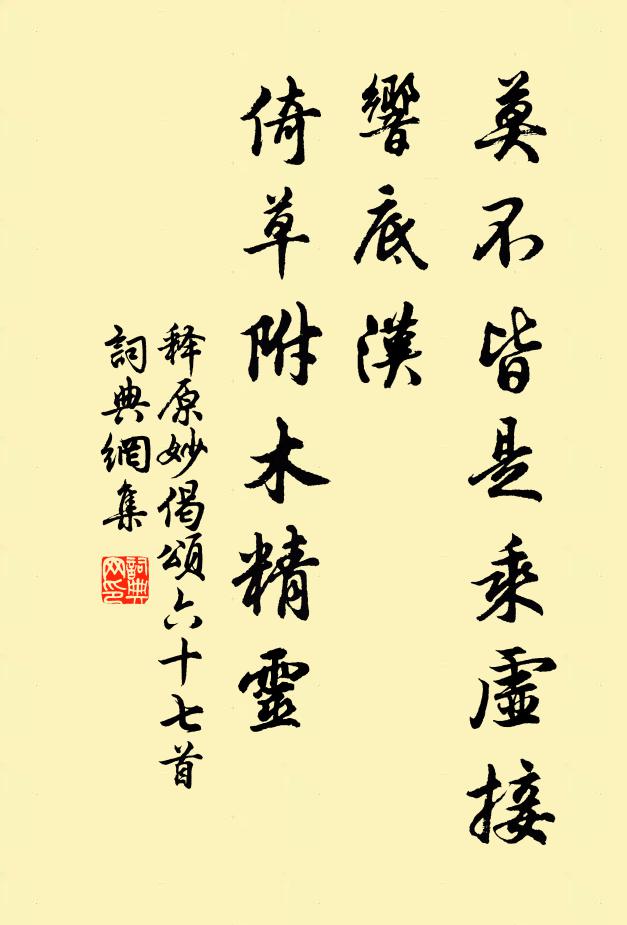 莫不皆是乘虛接
響底漢
倚草附木精靈
释原妙偈頌六十七首
詞典網集
詞典网印